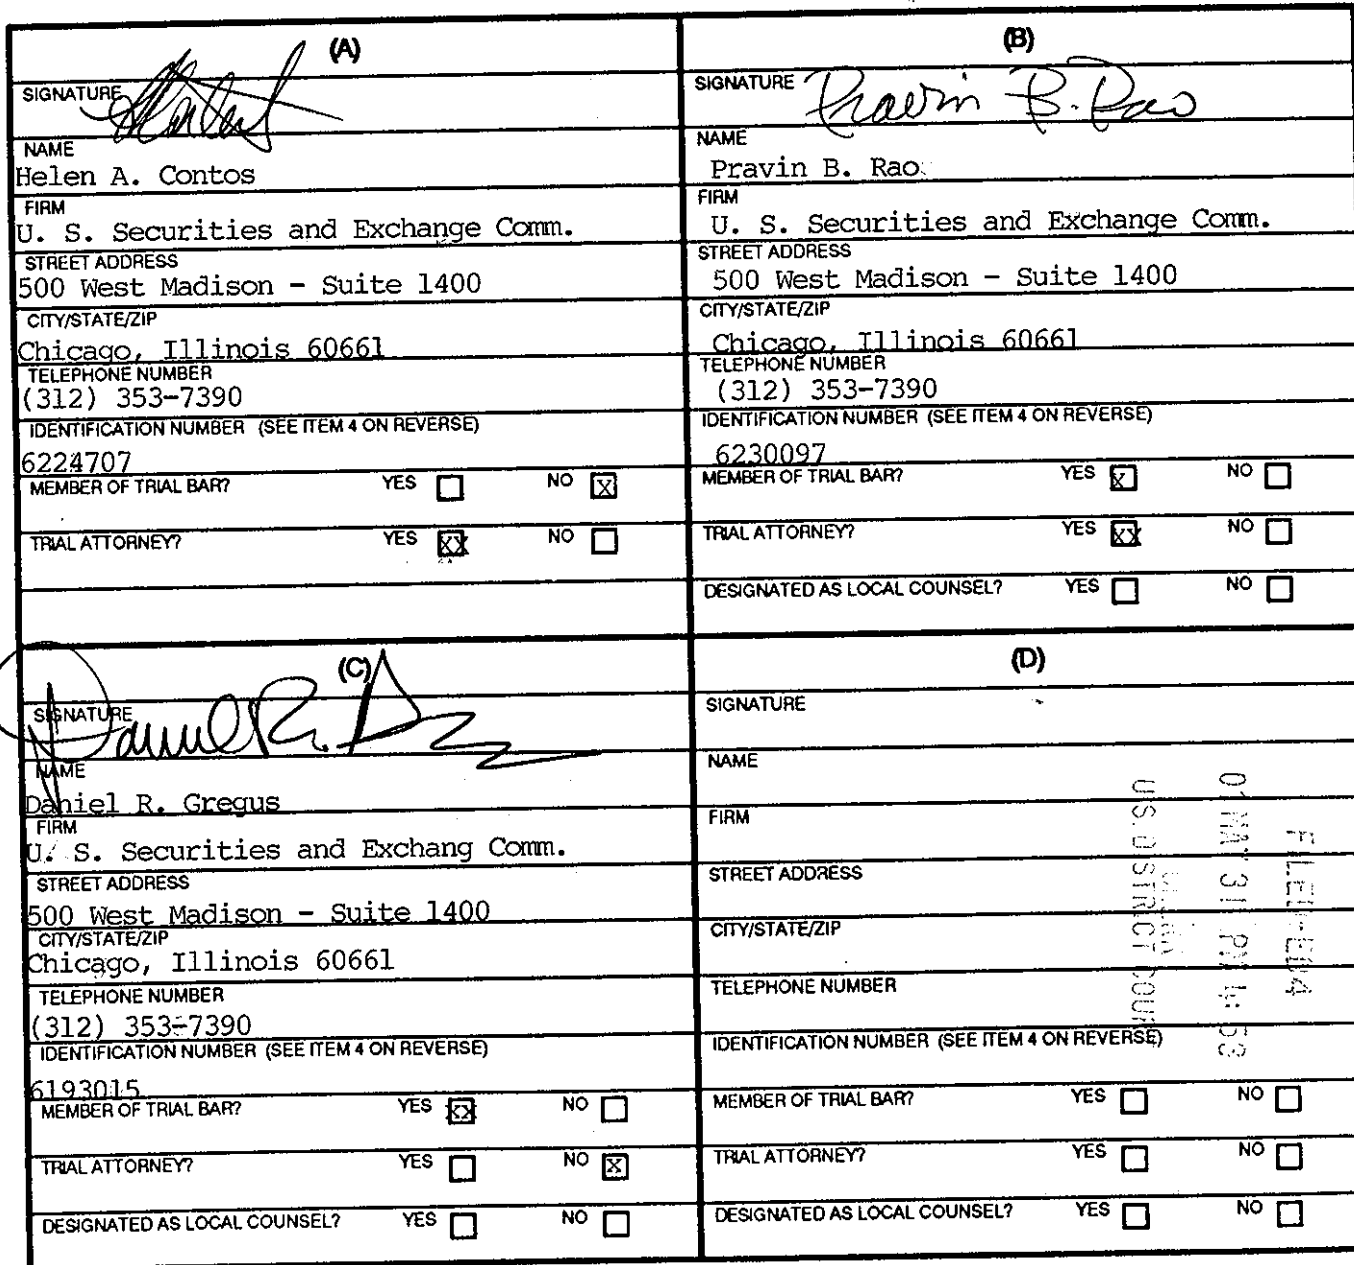 (A)
SIGNATURE
NAME
Helen A. Contos
FIRM
U. S. Securities and Exchange Comm.
STREET ADDRESS
500 West Madison - Suite 1400
CITY/STATE/ZIP
Chicago, Illinois 60661
TELEPHONE NUMBER
(312) 353-7390
IDENTIFICATION NUMBER (SEE ITEM 4 ON REVERSE)
6224707
MEMBER OF TRIAL BAR? YES NO X
TRIAL ATTORNEY? YES XX NO
(B)
SIGNATURE Pravin B. Rao
NAME
Pravin B. Rao
FIRM
U. S. Securities and Exchange Comm.
STREET ADDRESS
500 West Madison - Suite 1400
CITY/STATE/ZIP
Chicago, Illinois 60661
TELEPHONE NUMBER
(312) 353-7390
IDENTIFICATION NUMBER (SEE ITEM 4 ON REVERSE)
6230097
MEMBER OF TRIAL BAR? YES X NO
TRIAL ATTORNEY? YES XX NO
DESIGNATED AS LOCAL COUNSEL? YES NO
(C)
SIGNATURE
Daniel R.
NAME
Daniel R. Gregus
FIRM
U. S. Securities and Exchang Comm.
STREET ADDRESS
500 West Madison - Suite 1400
CITY/STATE/ZIP
Chicago, Illinois 60661
TELEPHONE NUMBER
(312) 353-7390
IDENTIFICATION NUMBER (SEE ITEM 4 ON REVERSE)
6193015
MEMBER OF TRIAL BAR? YES XX NO
TRIAL ATTORNEY? YES NO X
DESIGNATED AS LOCAL COUNSEL? YES NO
(D)
SIGNATURE
NAME
FIRM
STREET ADDRESS
CITY/STATE/ZIP
TELEPHONE NUMBER
IDENTIFICATION NUMBER (SEE ITEM 4 ON REVERSE)
MEMBER OF TRIAL BAR? YES NO
TRIAL ATTORNEY? YES NO
DESIGNATED AS LOCAL COUNSEL? YES NO
FILED-ED4
01 MAY 31 PM 4:53
U.S. DISTRICT COUR